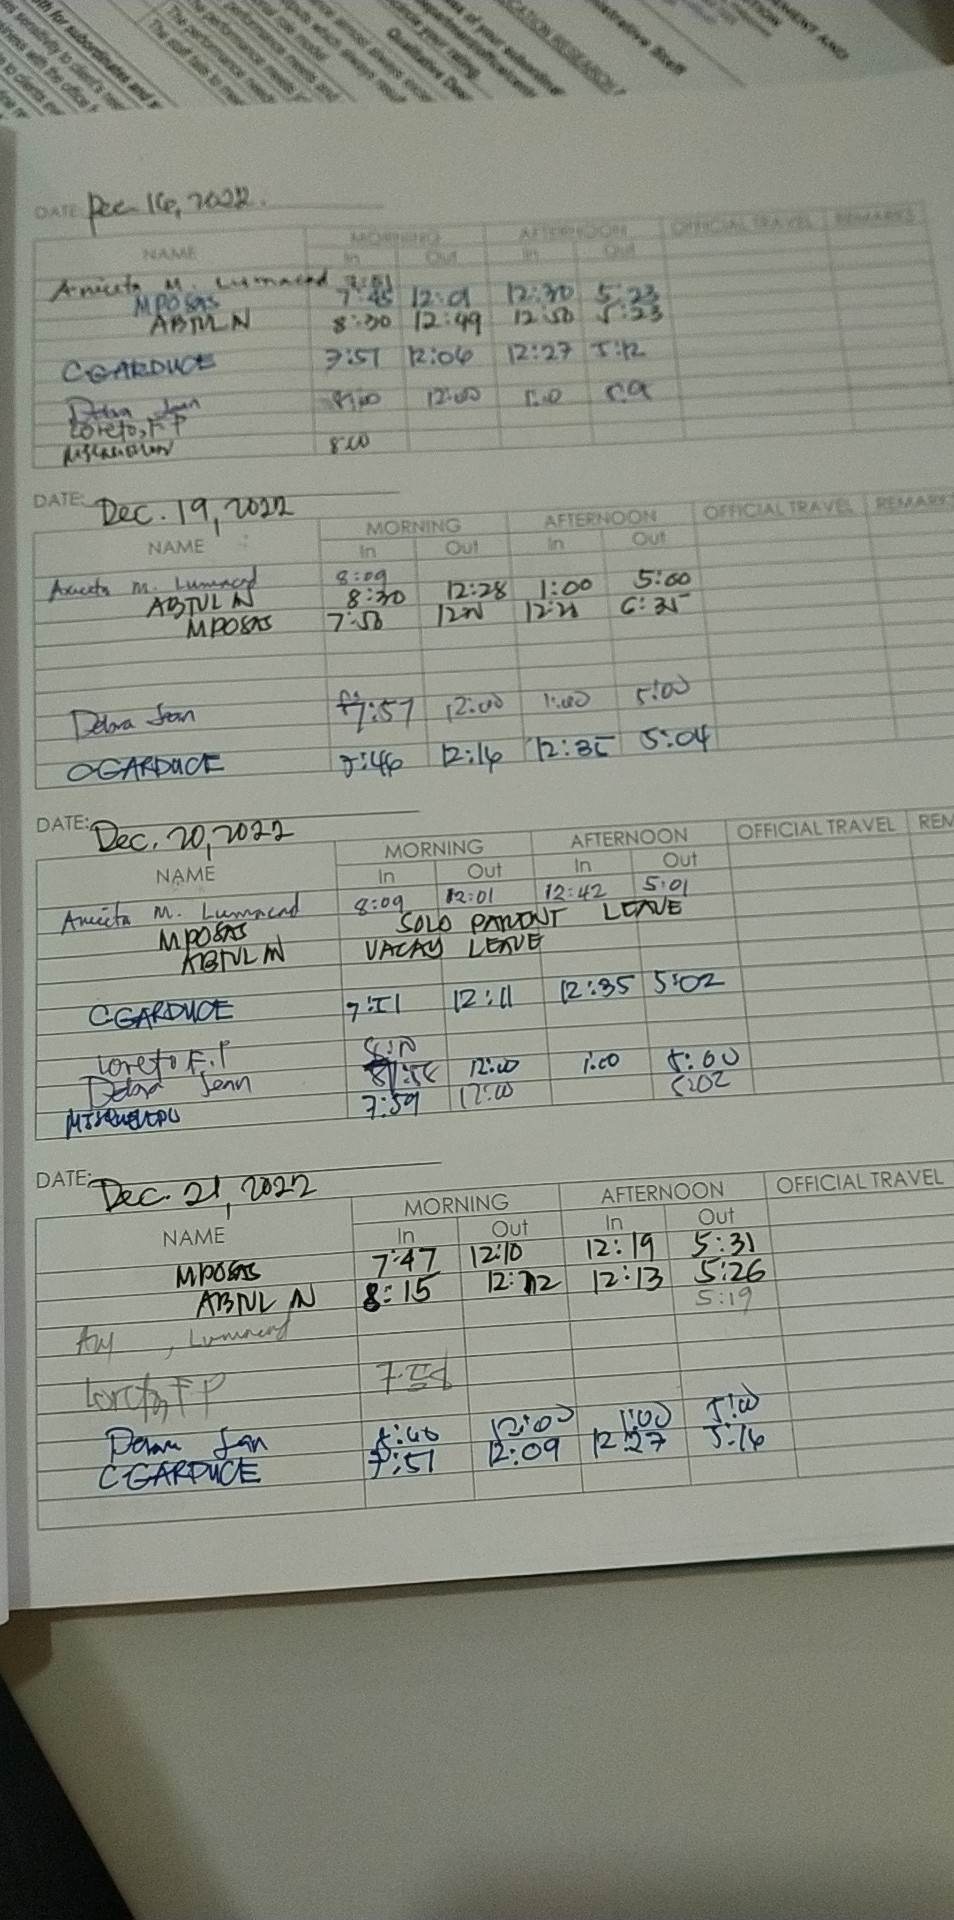 DATE: Dec 16, 2022.
NAME MORNING AFTERNOON OFFICIAL TRAVEL REMARKS
In Out In Out
Aniceta M. Lumacad 7:51
MPOSAS 7:45 12:01 12:30 5:23
ABTUL N 8:30 12:49 12:50 5:23
CGARDUCE 7:51 12:06 12:27 5:12
Debra Jean 8:00 12:00
Loreto, F P
8:00
DATE: Dec. 19, 2022
NAME MORNING AFTERNOON OFFICIAL TRAVEL REMARKS
In Out In Out
Aniceta M. Lumacad 8:09
ABTUL N 8:30 12:28 1:00 5:00
MPOSAS 7:50 6:35
Debra Jean 7:57 12:00 1:00 5:00
CGARDUCE 7:46 12:16 12:35 5:04
DATE: Dec. 20, 2022
NAME MORNING AFTERNOON OFFICIAL TRAVEL REM
In Out In Out
Aniceta M. Lumacad 8:09 12:01 12:42 5:01
MPOSAS SOLO PARENT LEAVE
ABTUL N VACAY LEAVE
CGARDUCE 7:51 12:11 12:35 5:02
Loreto F.P
Debra Jean 12:00 1:00 5:00
7:59 12:00 5:02
DATE: Dec. 21, 2022
NAME MORNING AFTERNOON OFFICIAL TRAVEL
In Out In Out
MPOSAS 7:47 12:10 12:19 5:31
ABTUL N 8:15 12:12 12:13 5:26
AM, Lumacad 5:19
Loreto, F P 7:58
Debra Jean 12:00 1:00 5:00
CGARDUCE 7:51 12:09 12:27 5:16